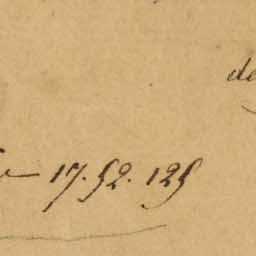 de
17. 52. 125